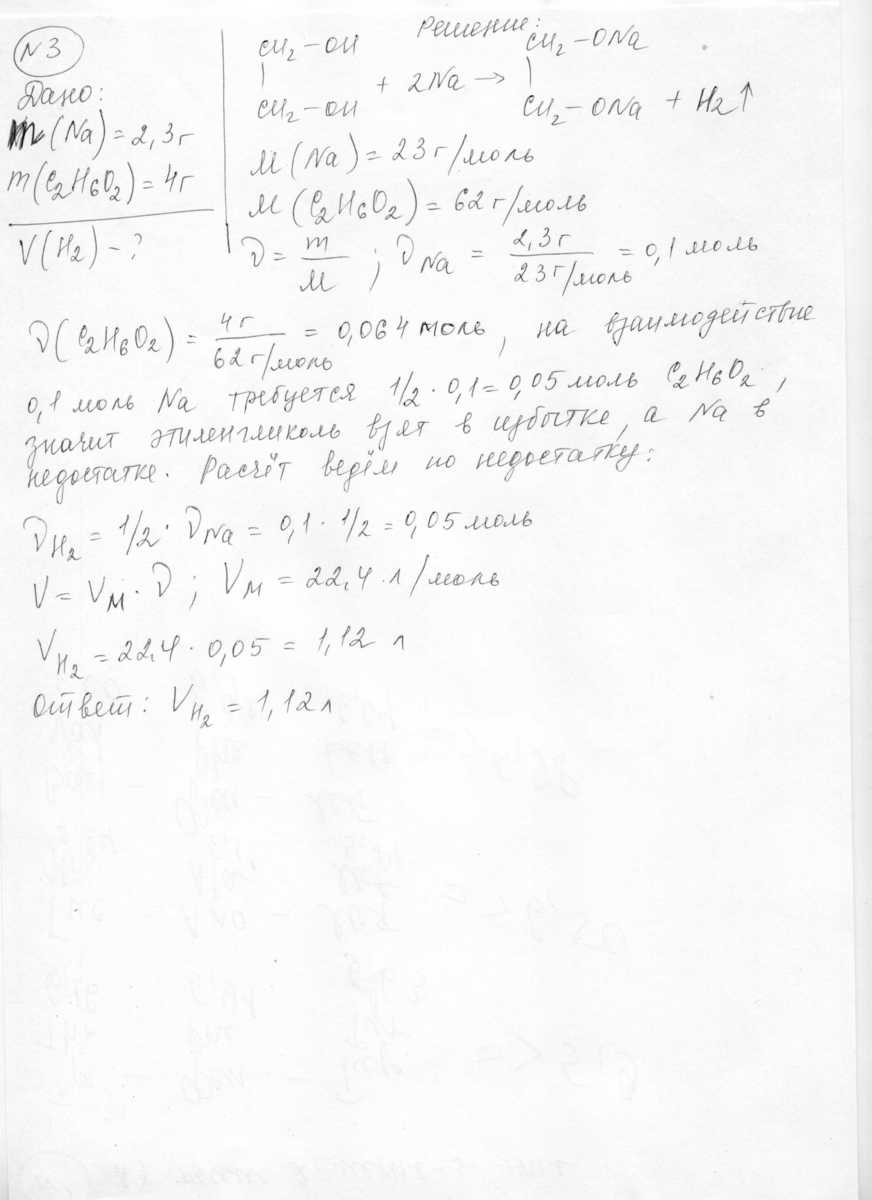 N 3
Дано:
m(Na) = 2,3 г
m(C2H6O2) = 4 г
V(H2) - ?
Решение:
CH2 - OH CH2 - ONa
| + 2Na → |
CH2 - OH CH2 - ONa + H2↑
M(Na) = 23 г/моль
M(C2H6O2) = 62 г/моль
ν = m/M ; ν Na = 2,3 г / 23 г/моль = 0,1 моль
ν(C2H6O2) = 4 г / 62 г/моль = 0,064 моль, на взаимодействие
0,1 моль Na требуется 1/2 · 0,1 = 0,05 моль C2H6O2,
значит этиленгликоль взят в избытке, а Na в
недостатке. Расчёт ведём по недостатку:
νH2 = 1/2 · νNa = 0,1 · 1/2 = 0,05 моль
V = VM · ν ; VM = 22,4 л/моль
VH2 = 22,4 · 0,05 = 1,12 л
Ответ: VH2 = 1,12 л